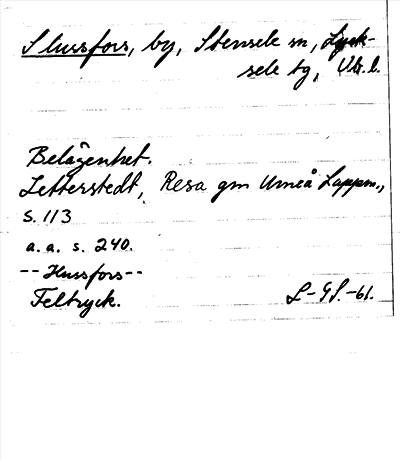 Slussfors, by, Stensele sn, Lyck-
sele tg, Vb. l.
Belägenhet.
Zetterstedt, Resa gm Umeå Lappm.,
s. 113
a. a. s. 240.
--Hussfors--
Feltryck.
L-GS.-61.